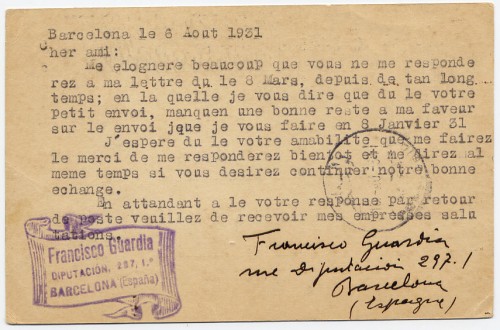 Barcelona le 6 Aout 1931
Cher ami:
Me elognere beaucoup que vous ne me responde
rez a ma lattre du le 8 Mars, depuis de tan long
temps; en la quelle je vous dire que du le votre
petit envoi, manquen une bonne reste a ma faveur
sur le envoi jque je vous faire en 8 Janvier 31
J'espere du le votre amabilite que me fairez
le merci de me responderez bientot et me direz al
meme temps si vous desirez continuer notre bonne
echange.
En attandant a le votre response par retour
de poste veuillez de recevoir mes empresses salu
tations.
Francisco Guardia
DIPUTACIÓN, 297, 1.º
BARCELONA (España)
Francisco Guardia
rue Diputación 297.1
Barcelona
(Espagne)